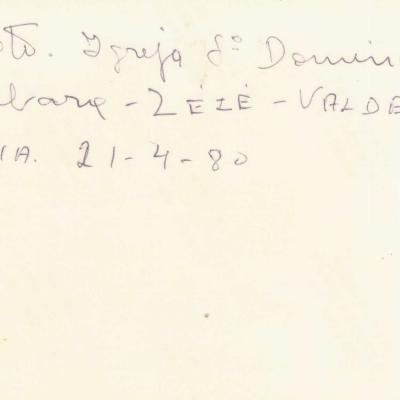 oto. Igreja Sº Domin
bara - ZÉZÉ - VALDE
IA. 21-4-80